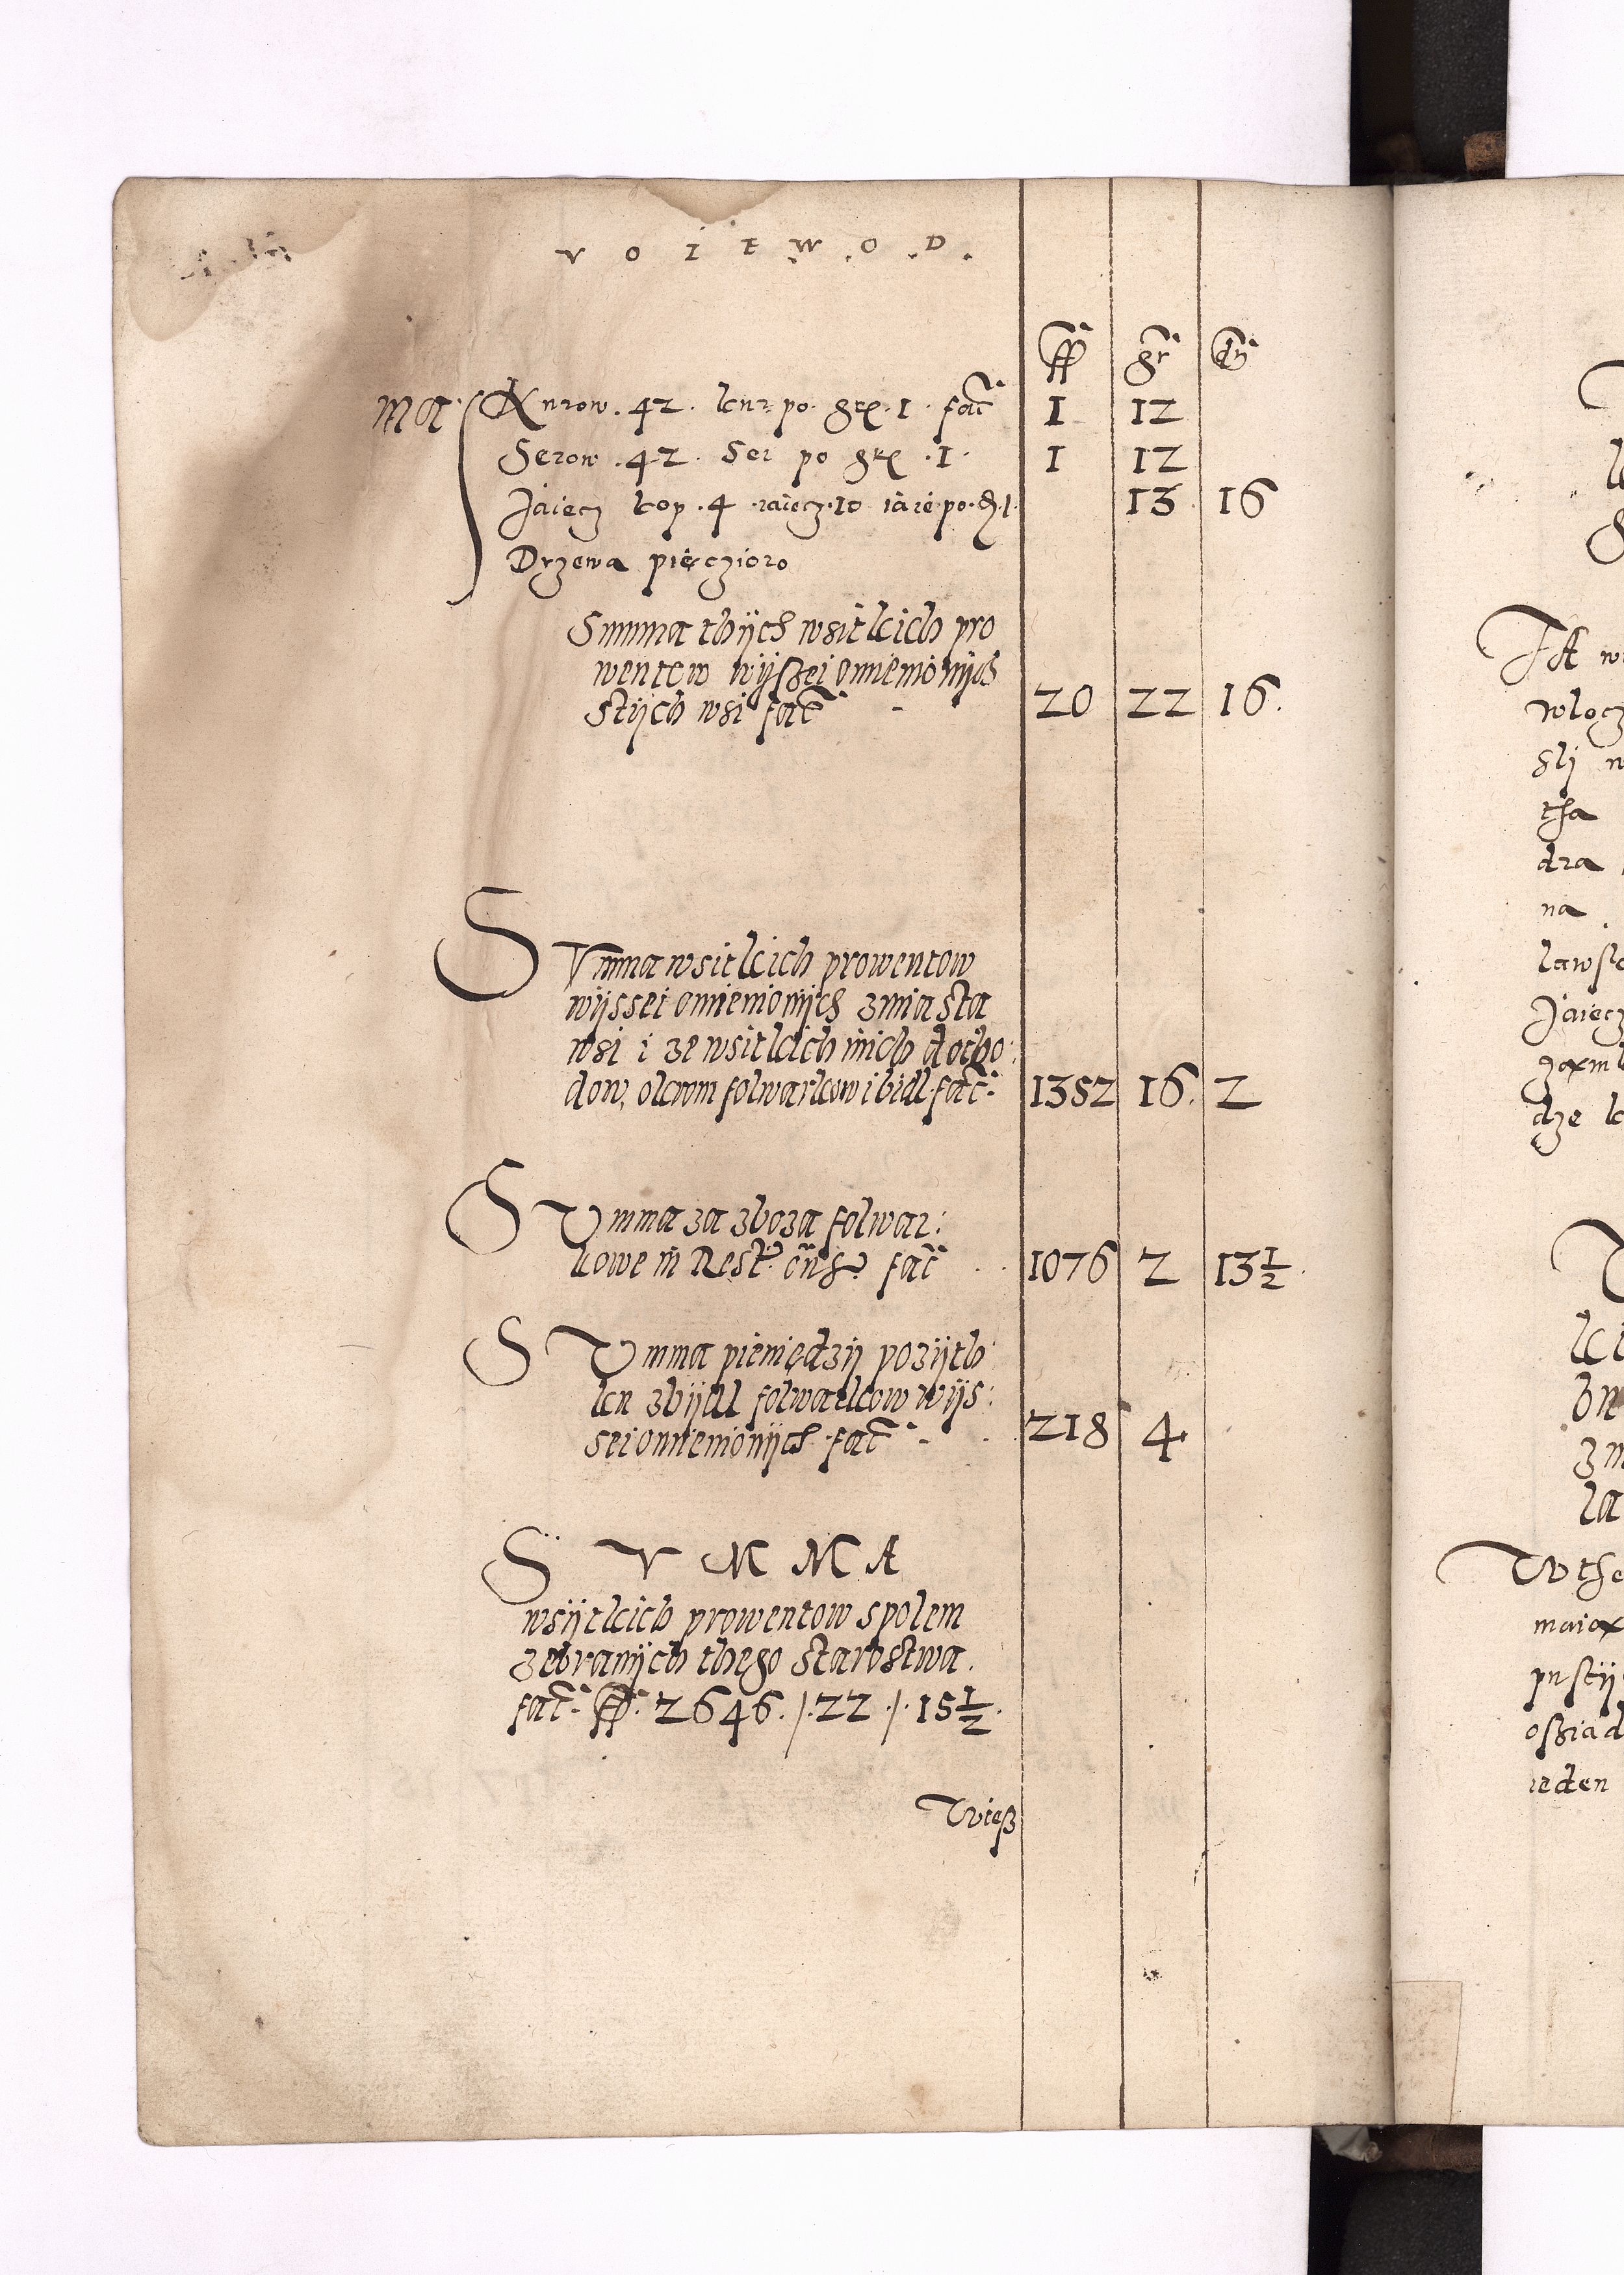 VOIEWOD.
ff gr dn
Ma Kurow. 42. kur po. gro. 1. fac̃ 1 12
Serow. 42. Ser po gro. 1. 1 12
Jaiecz kop. 4. iaiecz. 10 iaie. po. d. 1. 13 16
Drzewa pięczioro
Summa thÿch wsitkich pro
wentow wÿssei omienionÿch
stÿch wsi fac̃ 20 22 16.
SVmma wsitkich prowentow
wÿssei omienionÿch z miasta
wsi i ze wsitkich inich docho:
dow, okrom folwarkow i bidl. fac̃ 1352 16. 2
SVmma za zboza folwar:
kowe in Rest: fac̃ 1076 2 13 1/2.
SVmma pieniędzÿ pozÿth:
ku z bÿdl folwarkow wÿs:
sei omienionÿch. fac̃ 218 4
SVMMA
wsÿtkich prowentow spolem
zebranÿch thego starostwa.
fac̃. ff. 2646. /. 22 ./. 15 1/2.
Wieß
TA w
wlocz
gli n
tha
dra
na
lawsk
Jaiecz
dze k
la
W the
maiax
pustÿ
oßiad
ieden